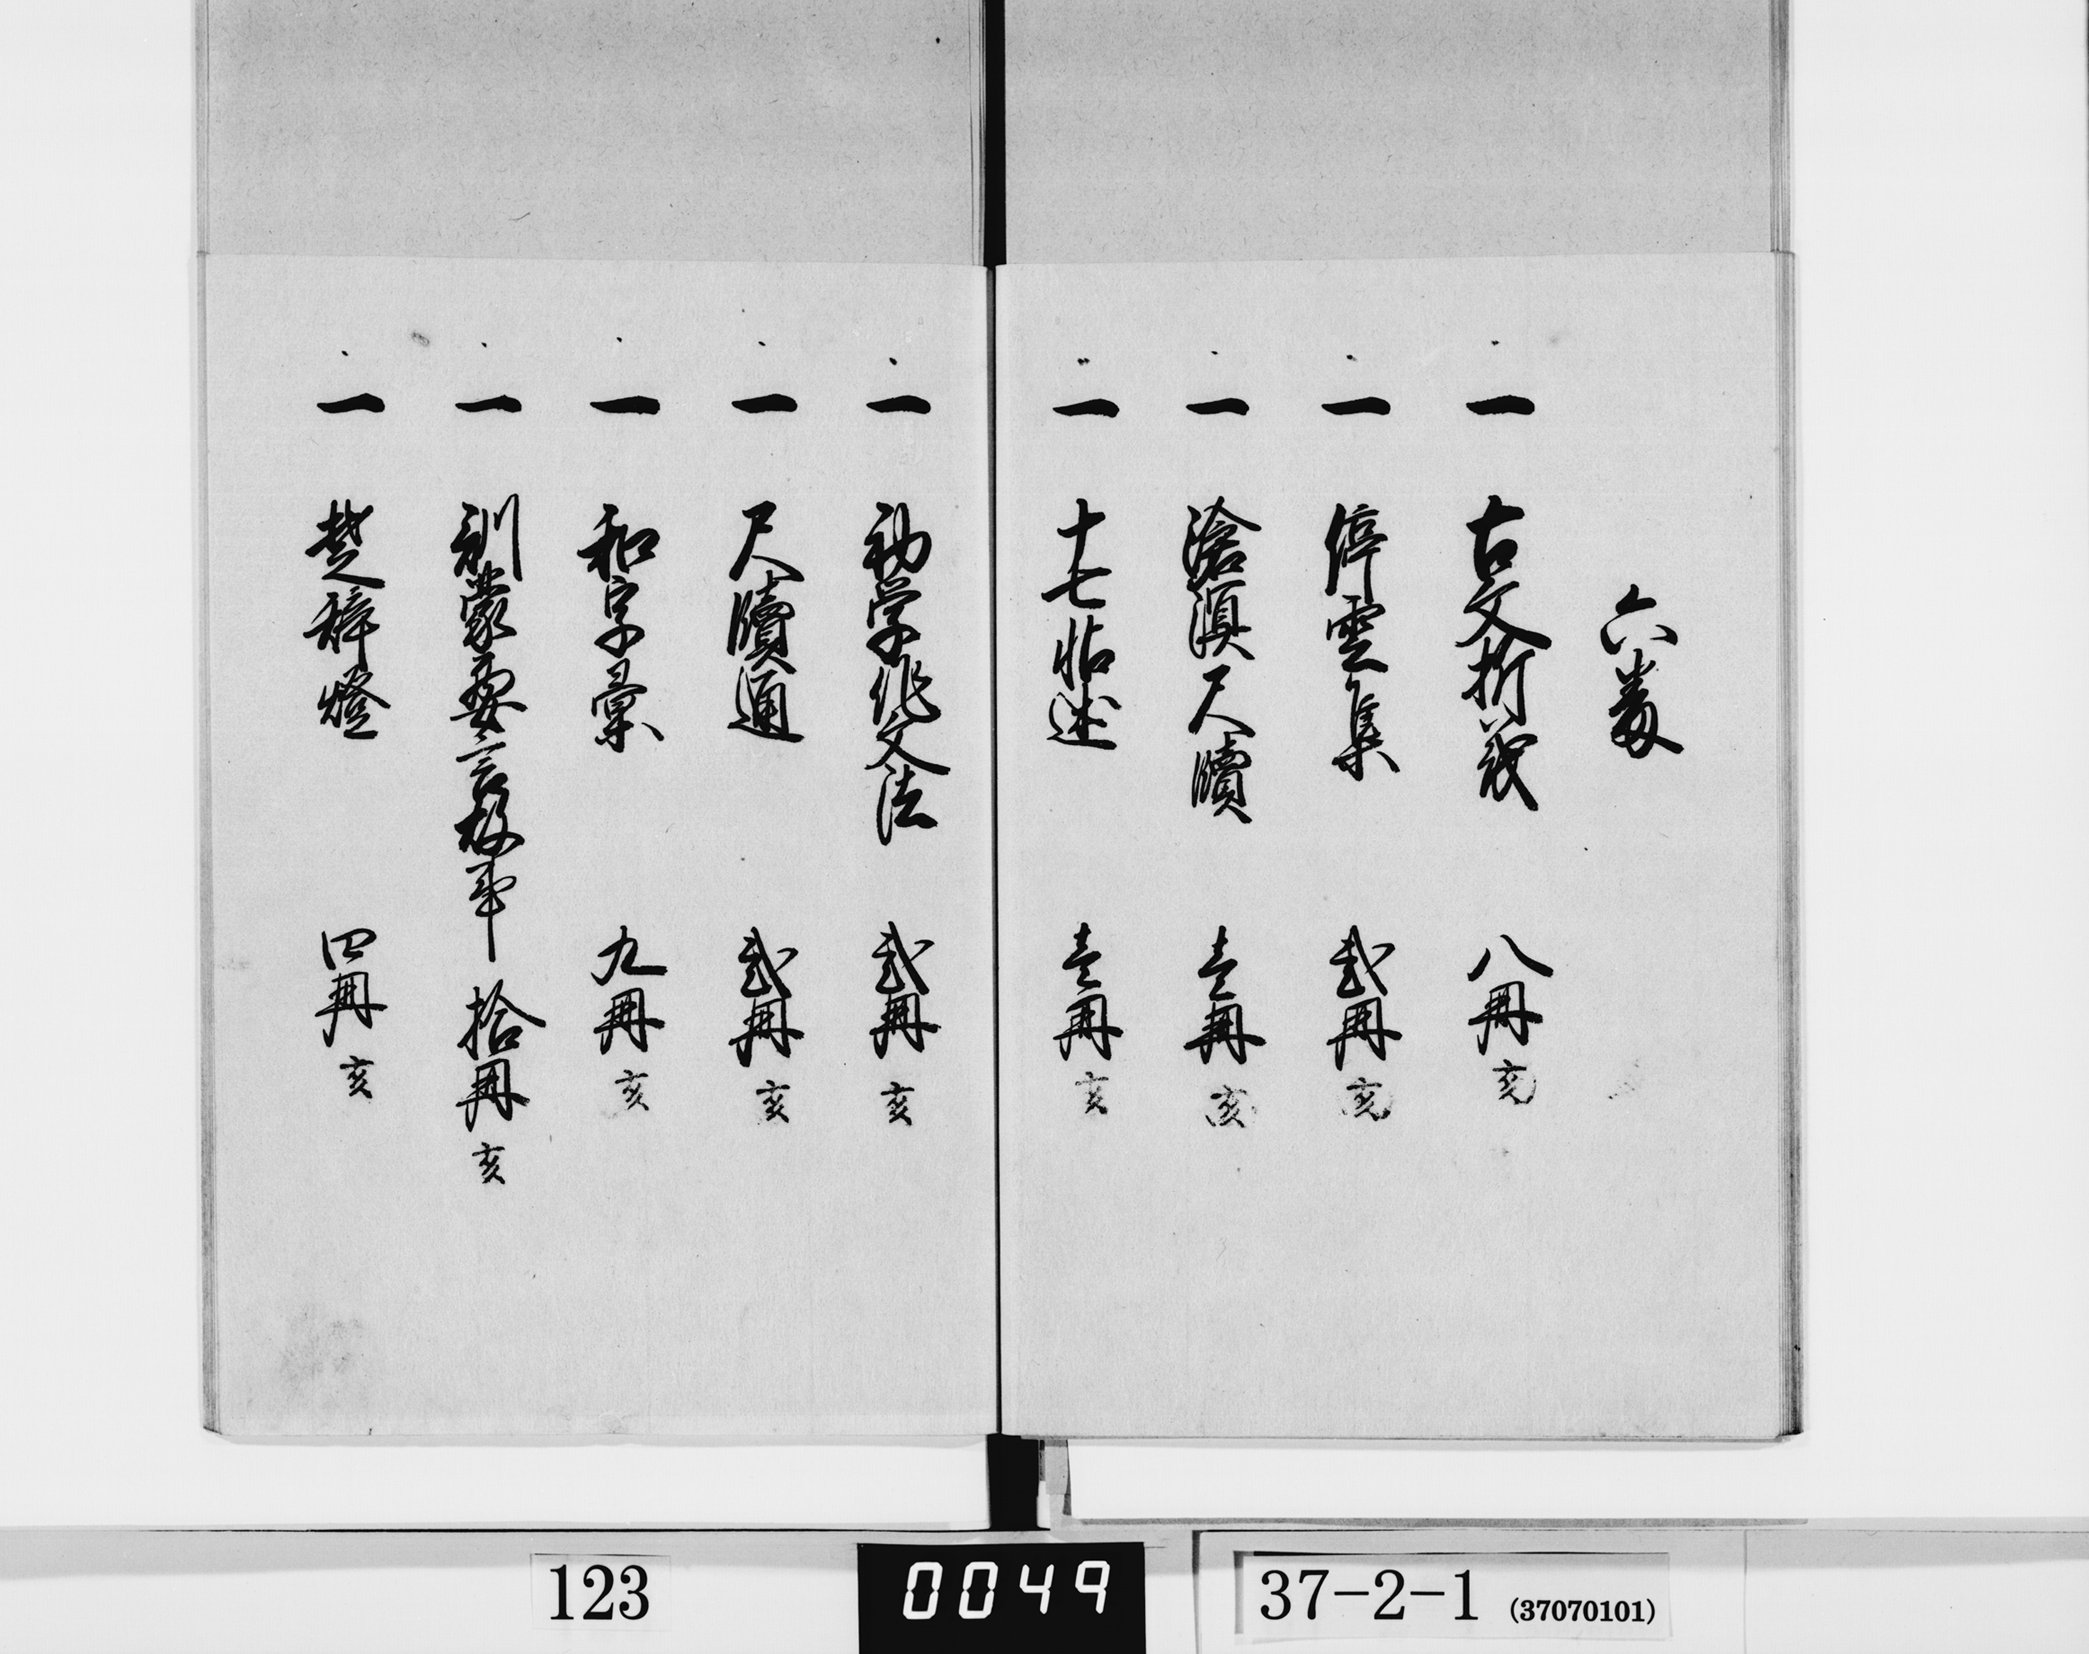 六番
一 古文折義 八冊 亥
一 停雲集 弐冊 亥
一 滄溟尺牘 壱冊 亥
一 十七帖述 壱冊 亥
一 初学作文法 弐冊 亥
一 尺牘通 弐冊 亥
一 和字彙 九冊 亥
一 訓蒙要言故事 拾冊 亥
一 楚辞燈 四冊 亥
123
0049
37-2-1 (37070101)